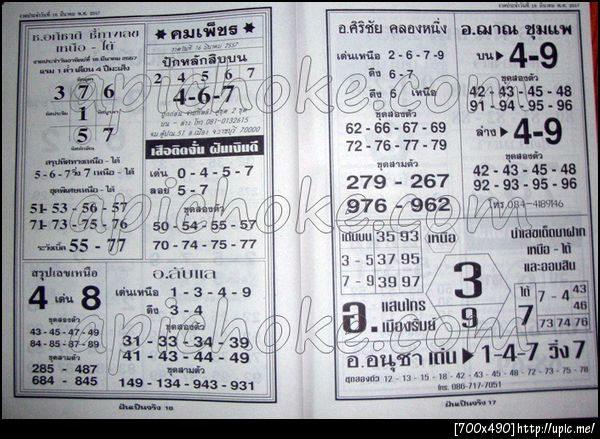 งวดประจำวันที่ 16 มีนาคม พ.ศ. 2557
ช.อภิชาติ ชี้ทางเลข
เหนือ - ใต้
งวดประจำวันอาทิตย์ที่ 16 มีนาคม 2557
แรม 1 ค่ำ เดือน 4 ปีมะเส็ง
3 7 6
1
5 7
สรุปทิศทางเหนือ - ใต้
5-6-7 วิ่ง 7 เหนือ - ใต้
ชุดพิเศษเหนือ - ใต้
51- 53 - 56 - 57
71 - 73 - 75 - 76
ระวังเบิ้ล 55 - 77
สรุปเลขเหนือ
4 เด่น 8
ชุดสองตัว
43 - 45 - 47 - 49
84 - 85 - 87 - 89
ชุดสามตัว
285 - 487
684 - 845
★ คมเพ็ชร ★
งวดวันที่ 16 มีนาคม 2557
ปักหลักสิบบน
2 4 5 6 7
4-6-7
บน - ล่าง โทร 081-0132615
จม.ตู้ปณ.51 อ.เมือง จ.ราชบุรี 70000
เสือติดจั่น ฝันเงินดี
เด่น 0 - 4 - 5 - 7
ลอย 5 - 7
ชุดสองตัว
50 - 54 - 55 - 57
70 - 74 - 75 - 77
อ.ลับแล
เด่นเหนือ 1 - 3 - 4 - 9
ดึง 3 - 4
ชุดสองตัว
31 - 33 - 34 - 39
41 - 43 - 44 - 49
ชุดสามตัว
149 - 134 - 943 - 931
ฝันเป็นจริง 16
งวดประจำวันที่ 16 มีนาคม พ.ศ. 2557
อ.ศิริชัย คลองหนึ่ง
เด่นเหนือ 2 - 6 - 7 - 9
ดึง 6 - 7
ดึง 6 เหนือ
ชุดสองตัว
62 - 66 - 67 - 69
72 - 76 - 77 - 79
ชุดสามตัว
279 - 267
976 - 962
อ.ฌาณ ชุมแพ
บน ▶ 4-9
ชุดสองตัว
42 - 43 - 45 - 48
91 - 94 - 95 - 96
ล่าง ▶ 4-9
ชุดสองตัว
42 - 43 - 45 - 48
92 - 93 - 95 - 96
โทร 084-4189146
เด่นบน 35 93 เหนือ
3 - 5 37 95
7 - 9 39 97
3
9
นำเลขเด็ดมาฝาก
เหนือ - ใต้
และออมสิน
ใต้ 7
7 - 4 43 46
73 74 76
อ. แสนไกร
เมืองรัมย์
อ.อนุชา เด่น ▶ 1-4-7 วิ่ง 7
ชุดสองตัว 12 - 13 - 15 - 18 - 42 - 43 - 45 - 48 - 72 - 73 - 75 - 78
โทร. 086-717-7051
ฝันเป็นจริง 17
apichoke.com
apichoke.com
apichoke.com
[700x490]http://upic.me/